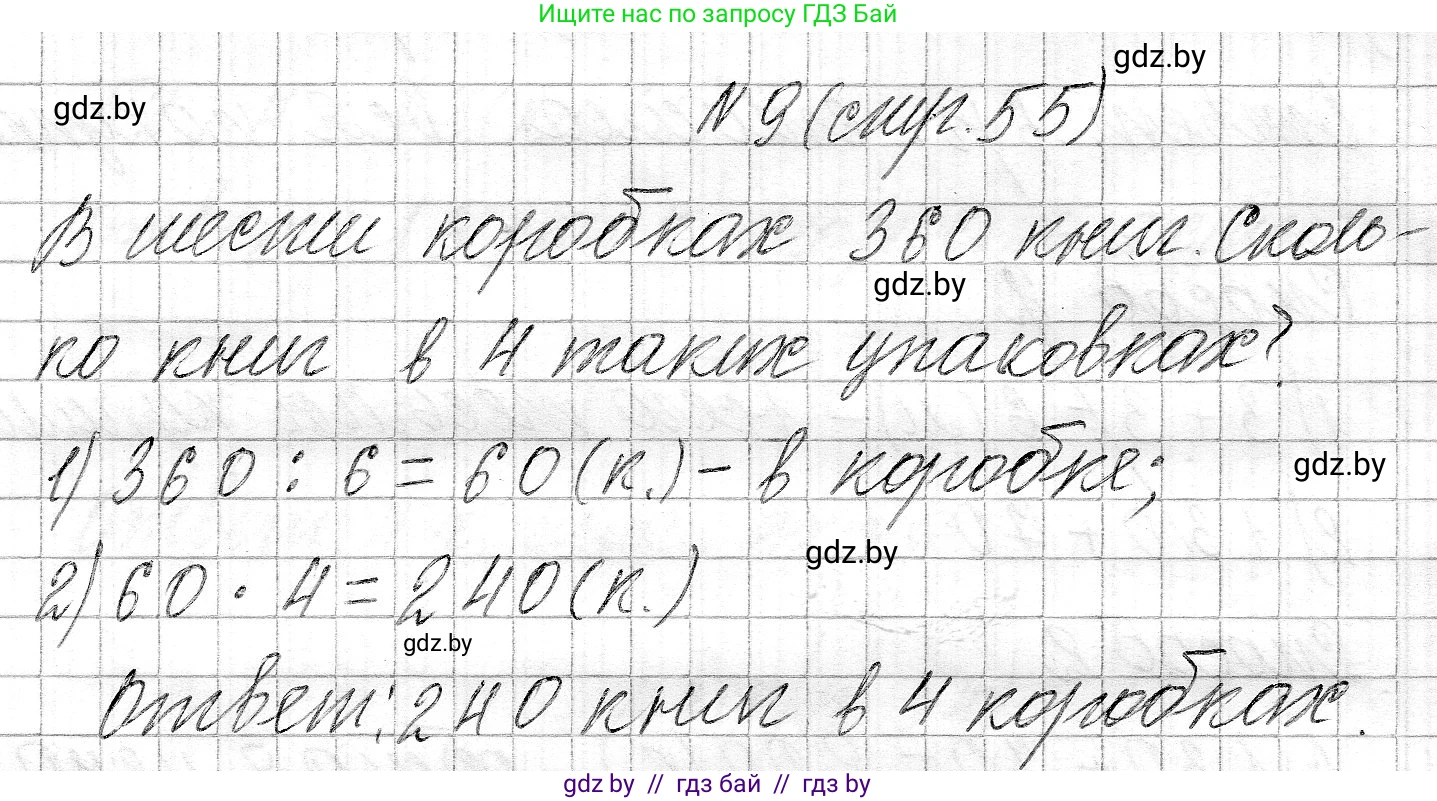 Ищите нас по запросу ГДЗ Бай
gdz.by
gdz.by
N 9 (стр. 55)
В шести коробках 360 книг. Сколь-
gdz.by
ко книг в 4 таких упаковках?
1) 360 : 6 = 60 (к.) – в коробке;
gdz.by
gdz.by
2) 60 · 4 = 240 (к.)
gdz.by
Ответ: 240 книг в 4 коробках.
gdz.by // гдз бай // гдз by